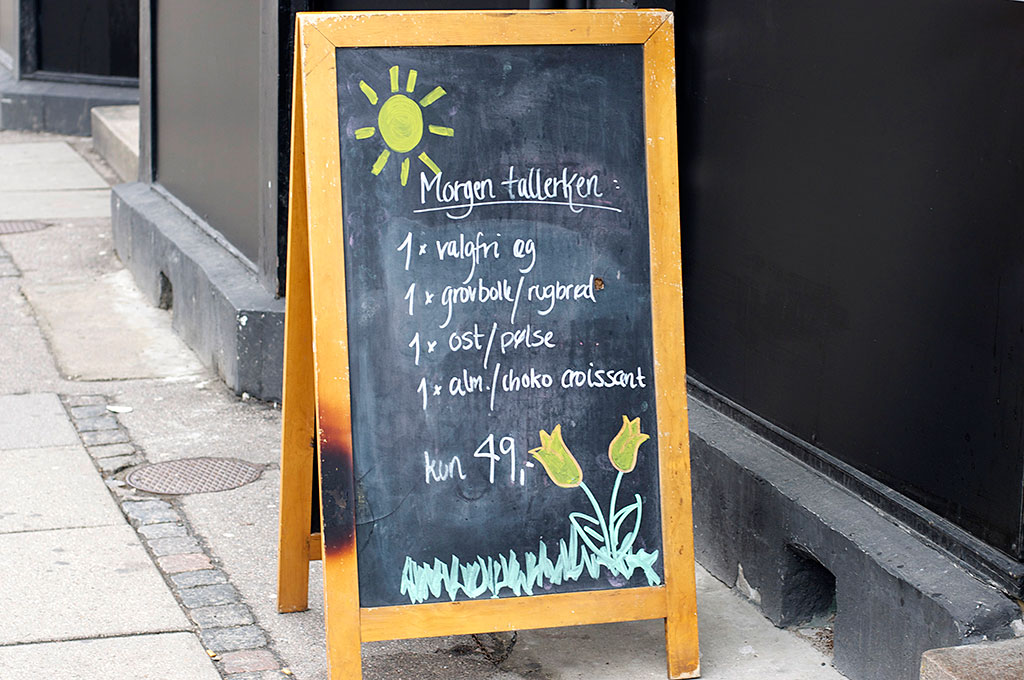 Morgen tallerken :
1 x valgfri æg
1 x grovbolle/rugbrød
1 x ost/pølse
1 x alm./choko croissant
kun 49,-